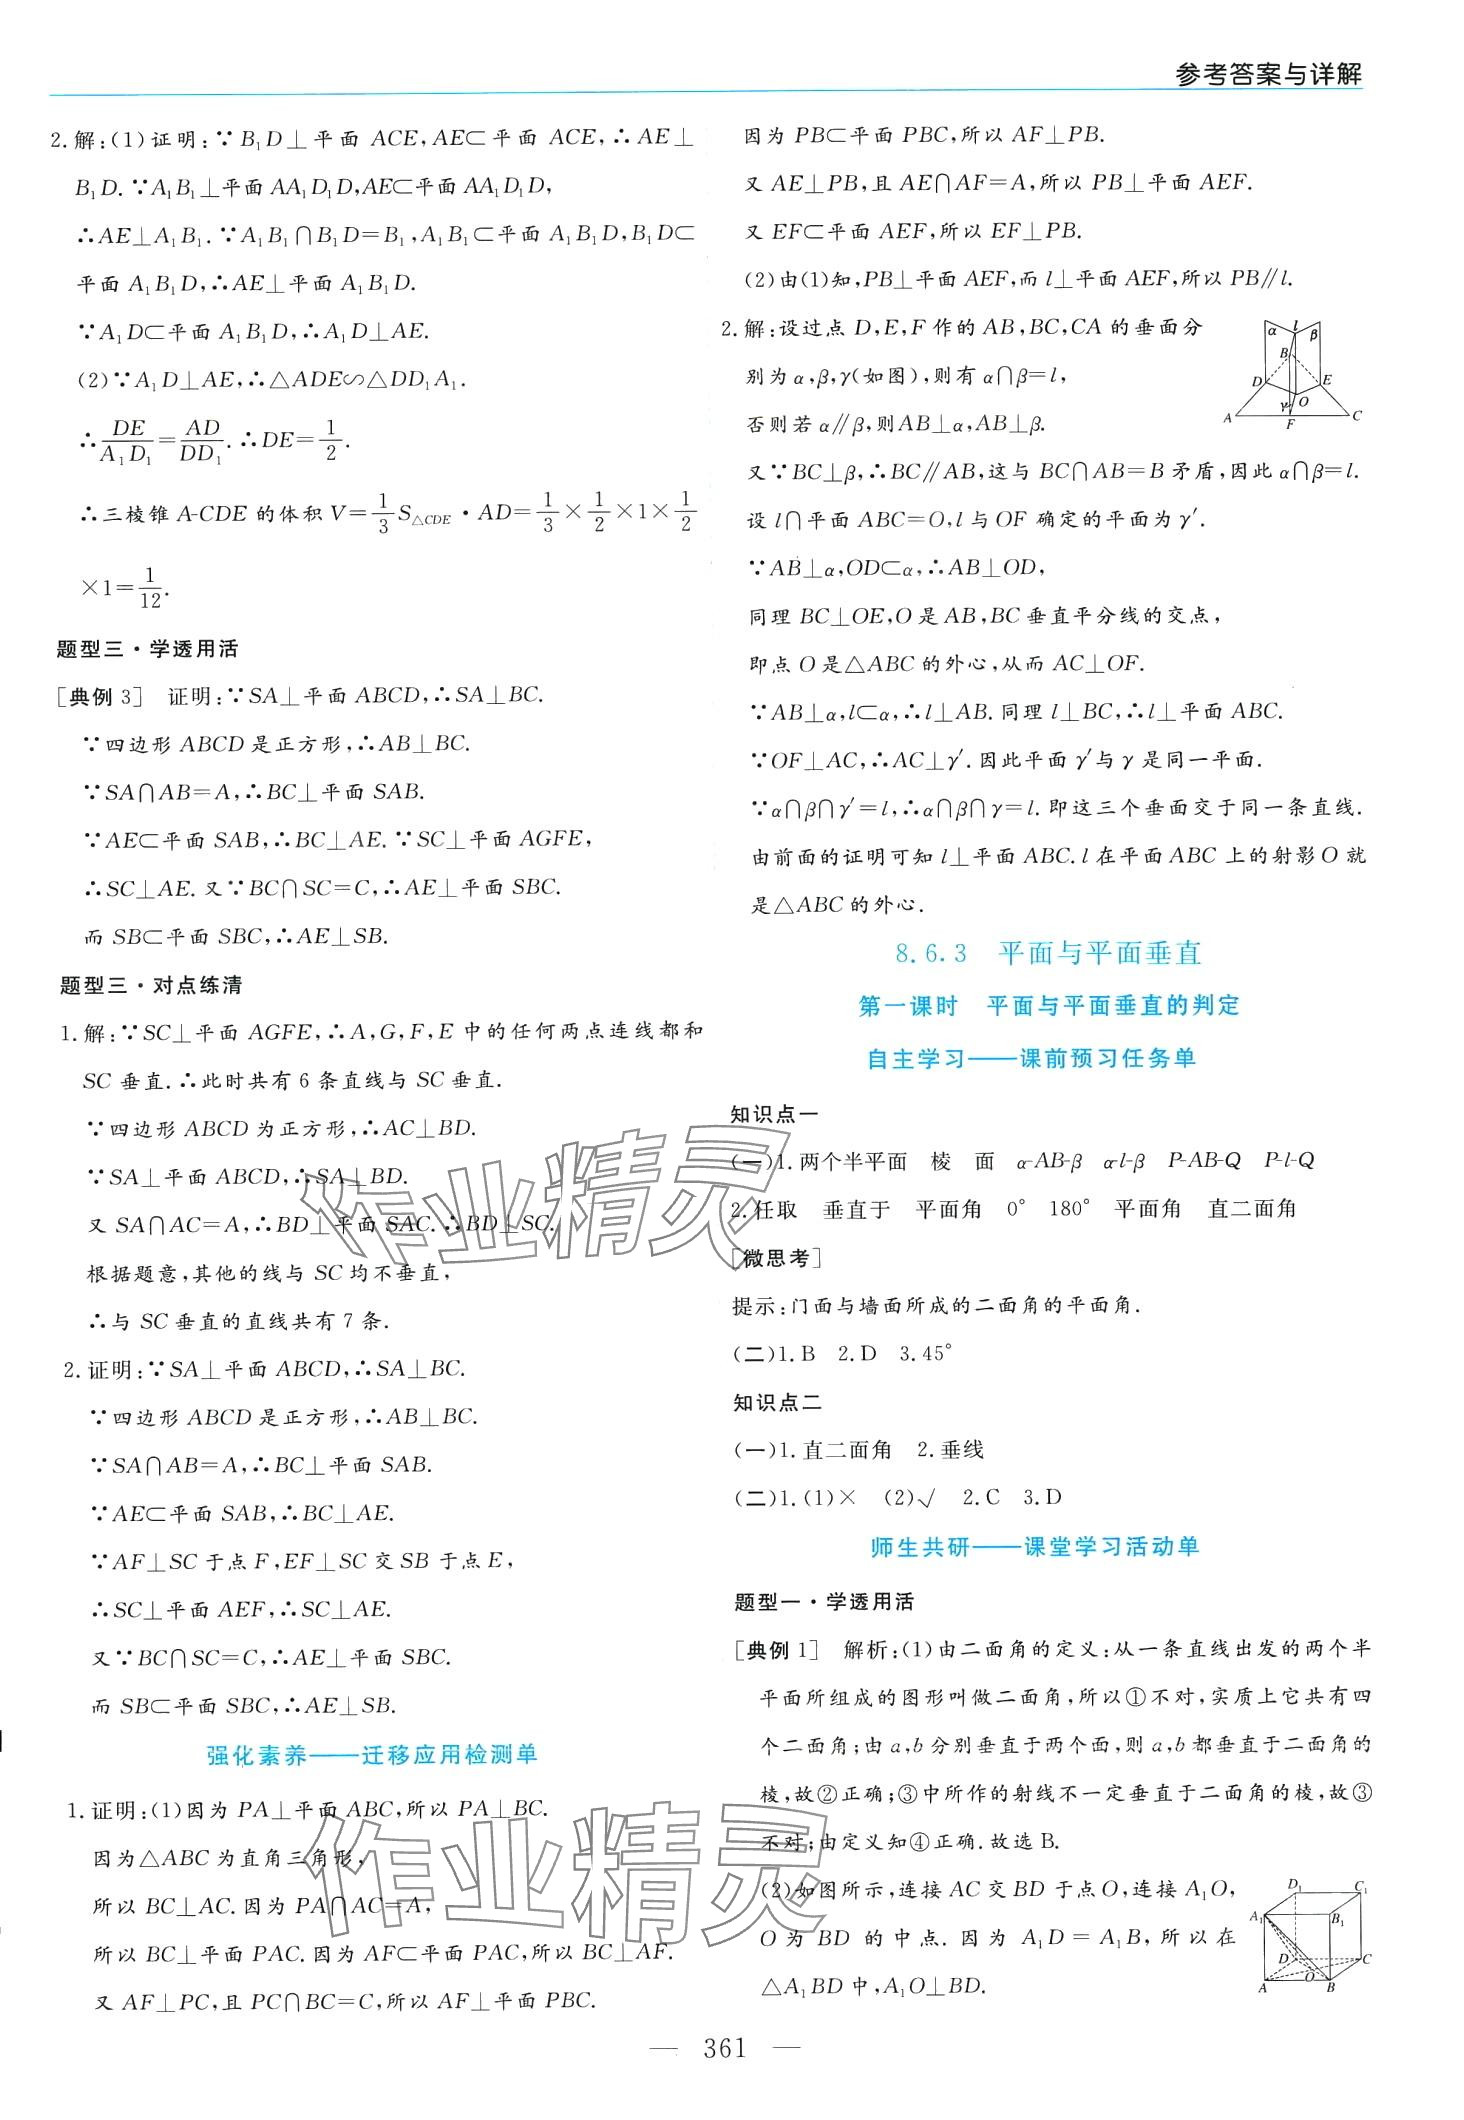 参考答案与详解
2.解:(1)证明:∵B₁D⊥平面 ACE,AE⊂平面 ACE,∴AE⊥
B₁D.∵A₁B₁⊥平面 AA₁D₁D,AE⊂平面 AA₁D₁D,
∴AE⊥A₁B₁.∵A₁B₁∩B₁D=B₁,A₁B₁⊂平面 A₁B₁D,B₁D⊂
平面 A₁B₁D,∴AE⊥平面 A₁B₁D.
∵A₁D⊂平面 A₁B₁D,∴A₁D⊥AE.
(2)∵A₁D⊥AE,∴△ADE∽△DD₁A₁.
∴DE/A₁D₁=AD/DD₁.∴DE=1/2.
∴三棱锥 A-CDE 的体积 V=1/3 S△CDE·AD=1/3×1/2×1×1/2
×1=1/12.
题型三·学透用活
[典例 3] 证明:∵SA⊥平面 ABCD,∴SA⊥BC.
∵四边形 ABCD 是正方形,∴AB⊥BC.
∵SA∩AB=A,∴BC⊥平面 SAB.
∵AE⊂平面 SAB,∴BC⊥AE.∵SC⊥平面 AGFE,
∴SC⊥AE.又∵BC∩SC=C,∴AE⊥平面 SBC.
而 SB⊂平面 SBC,∴AE⊥SB.
题型三·对点练清
1.解:∵SC⊥平面 AGFE,∴A,G,F,E 中的任何两点连线都和
SC 垂直.∴此时共有 6 条直线与 SC 垂直.
∵四边形 ABCD 为正方形,∴AC⊥BD.
∵SA⊥平面 ABCD,∴SA⊥BD.
又 SA∩AC=A,∴BD⊥平面 SAC.∴BD⊥SC.
根据题意,其他的线与 SC 均不垂直,
∴与 SC 垂直的直线共有 7 条.
2.证明:∵SA⊥平面 ABCD,∴SA⊥BC.
∵四边形 ABCD 是正方形,∴AB⊥BC.
∵SA∩AB=A,∴BC⊥平面 SAB.
∵AE⊂平面 SAB,∴BC⊥AE.
∵AF⊥SC 于点 F,EF⊥SC 交 SB 于点 E,
∴SC⊥平面 AEF,∴SC⊥AE.
又∵BC∩SC=C,∴AE⊥平面 SBC.
而 SB⊂平面 SBC,∴AE⊥SB.
强化素养——迁移应用检测单
1.证明:(1)因为 PA⊥平面 ABC,所以 PA⊥BC.
因为△ABC 为直角三角形,
所以 BC⊥AC.因为 PA∩AC=A,
所以 BC⊥平面 PAC.因为 AF⊂平面 PAC,所以 BC⊥AF.
又 AF⊥PC,且 PC∩BC=C,所以 AF⊥平面 PBC.
因为 PB⊂平面 PBC,所以 AF⊥PB.
又 AE⊥PB,且 AE∩AF=A,所以 PB⊥平面 AEF.
又 EF⊂平面 AEF,所以 EF⊥PB.
(2)由(1)知,PB⊥平面 AEF,而 l⊥平面 AEF,所以 PB∥l.
2.解:设过点 D,E,F 作的 AB,BC,CA 的垂面分
别为 α,β,γ(如图),则有 α∩β=l,
否则若 α∥β,则AB⊥α,AB⊥β.
又∵BC⊥β,∴BC∥AB,这与 BC∩AB=B 矛盾,因此 α∩β=l.
α l β B D E O γ A F C
设 l∩平面 ABC=O,l 与 OF 确定的平面为 γ′.
∵AB⊥α,OD⊂α,∴AB⊥OD,
同理 BC⊥OE,O 是 AB,BC 垂直平分线的交点,
即点 O 是△ABC 的外心,从而 AC⊥OF.
∵AB⊥α,l⊂α,∴l⊥AB.同理 l⊥BC,∴l⊥平面 ABC.
∵OF⊥AC,∴AC⊥γ′.因此平面 γ′与 γ 是同一平面.
∵α∩β∩γ′=l,∴α∩β∩γ=l.即这三个垂面交于同一条直线.
由前面的证明可知 l⊥平面 ABC.l 在平面 ABC 上的射影 O 就
是△ABC 的外心.
8.6.3 平面与平面垂直
第一课时 平面与平面垂直的判定
自主学习——课前预习任务单
知识点一
(一)1.两个半平面 棱 面 α-AB-β α-l-β P-AB-Q P-l-Q
2.任取 垂直于 平面角 0° 180° 平面角 直二面角
[微思考]
提示:门面与墙面所成的二面角的平面角.
(二)1.B 2.D 3.45°
知识点二
(一)1.直二面角 2.垂线
(二)1.(1)× (2)√ 2.C 3.D
师生共研——课堂学习活动单
题型一·学透用活
[典例 1] 解析:(1)由二面角的定义:从一条直线出发的两个半
平面所组成的图形叫做二面角,所以①不对,实质上它共有四
个二面角;由 a,b 分别垂直于两个面,则 a,b 都垂直于二面角的
棱,故②正确;③中所作的射线不一定垂直于二面角的棱,故③
不对;由定义知④正确.故选 B.
(2)如图所示,连接 AC 交 BD 于点 O,连接 A₁O,
O 为 BD 的中点.因为 A₁D=A₁B,所以在
△A₁BD 中,A₁O⊥BD.
D₁ C₁ A₁ B₁ D C O A B
— 361 —
作业精灵
作业精灵